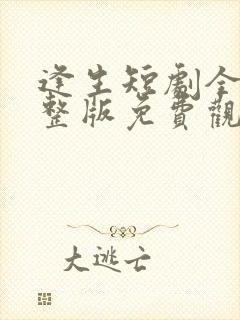 逢生短劇全
整版免費觀
大逃亡